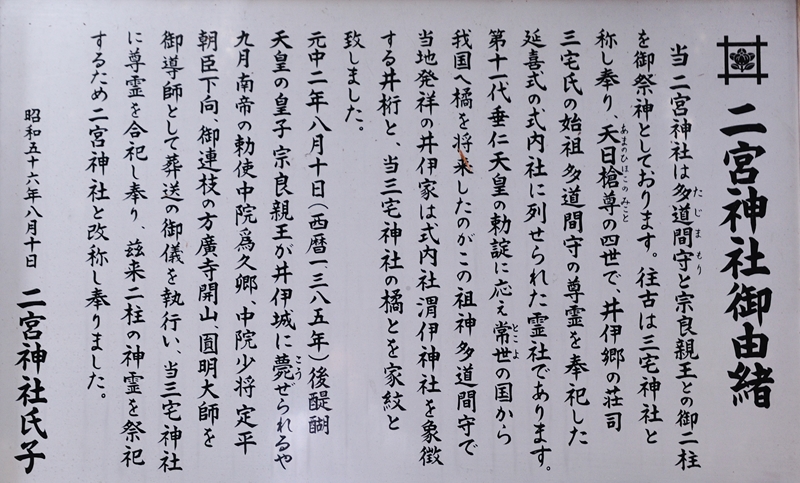 二宮神社御由緒
当二宮神社は多道間守と宗良親王との御二柱
を御祭神としております。往古は三宅神社と
称し奉り、天日槍尊の四世で、井伊郷の荘司
三宅氏の始祖多道間守の尊霊を奉祀した
延喜式の式内社に列せられた霊社であります。
第十一代垂仁天皇の勅諚に応え常世の国から
我国へ橘を将来したのがこの祖神多道間守で
当地発祥の井伊家は式内社渭伊神社を象徴
する井桁と、当三宅神社の橘とを家紋と
致しました。
元中二年八月十日(西暦一、三八五年)後醍醐
天皇の皇子宗良親王が井伊城に薨せられるや
九月南帝の勅使中院爲久卿、中院少将定平
朝臣下向、御連枝の方廣寺開山、圓明大師を
御導師として葬送の御儀を執行い、当三宅神社
に尊霊を合祀し奉り、玆来二柱の神霊を祭祀
するため二宮神社と改称し奉りました。
昭和五十六年八月十日 二宮神社氏子
たじまもり
あまのひほこのみこと
とこよ
こう